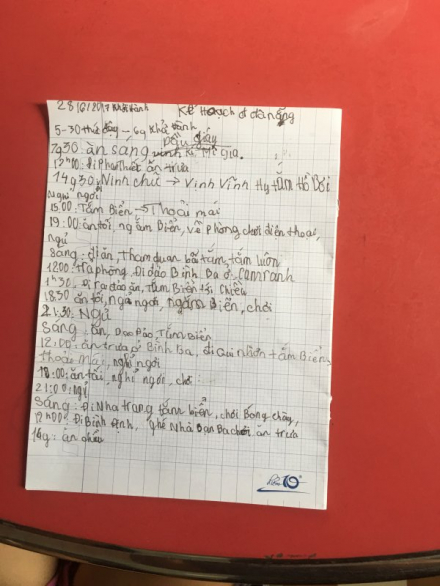 28/6/2017 Khởi hành Kế Hoạch đi đà nẵng
5-30 thức dậy - 6g Khởi hành
7g30: ăn sáng Dầu Giây
12h00: đi Phan thiết ăn trưa
14g30, Ninh chữ → Vịnh Vĩnh Hy tắm Hồ Bơi
Nghỉ ngơi
15:00: Tắm Biển → Thoải mái
19:00: ăn tối, ngắm Biển, về phòng chơi điện thoại,
ngủ
sáng: đi ăn, tham quan bãi tắm, tắm luôn
1200: trả phòng, Đi đảo Bình Ba ở Camranh
1h30: Đi ra đảo ăn, tắm Biển tới chiều
1850 ăn tối, nghỉ ngơi, ngắm Biển, chơi
21:30: Ngủ
sáng: ăn, Dạo Đảo, Tắm Biển
12:00: ăn trưa ở Bình Ba, đi Qui nhơn tắm Biển,
thoải mái, nghỉ ngơi
18:00: ăn tối, nghỉ ngơi, chơi
21:00: ngủ
sáng: Đi Nha trang tắm biển, chơi Bóng chuyền,
12h00: Đi Bình Định, ghé Nhà Bạn Ba chơi ăn trưa
16g: ăn cháu